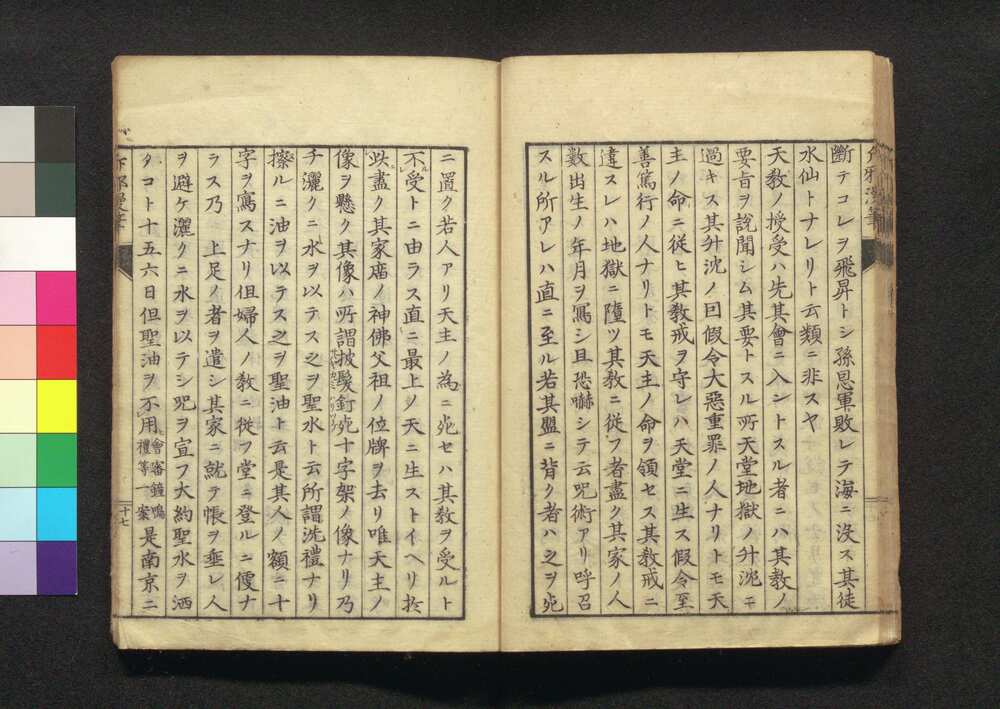 斷テコレヲ飛昇トシ孫恩軍敗レテ海ニ沒ス其徒
水仙トナレリト云類ニ非スヤ
天教ノ授受ハ先其會ニ入ントスル者ニハ其教ノ
要旨ヲ說聞シム其要トスル所天堂地獄ノ升沈ニ
過キス其升沈ノ因假令大惡重罪ノ人ナリトモ天
主ノ命ニ從ヒ其教戒ヲ守レハ天堂ニ生ス假令至
善篤行ノ人ナリトモ天主ノ命ヲ領セス其教戒ニ
違スレハ地獄ニ墮ツ其教ニ從フ者盡ク其家ノ人
數出生ノ年月ヲ寫シ且恐嚇シテ云呪術アリ呼召
スル所アレハ直ニ至ル若其盟ニ背ク者ハ之ヲ死
ニ置ク若人アリ天主ノ為ニ死セハ其教ヲ受ルト
不受トニ由ラス直ニ最上ノ天ニ生ストイヘリ於
此盡ク其家庿ノ神佛父祖ノ位牌ヲ去リ唯天主ノ
像ヲ懸ク其像ハ所謂披髮釘死十字架ノ像ナリ乃
チ灑クニ水ヲ以テス之ヲ聖水ト云所謂洗禮ナリ
擦ルニ油ヲ以テス之ヲ聖油ト云是其人ノ額ニ十
字ヲ寫スナリ但婦人ノ教ニ從フ堂ニ登ルニ便ナ
ラス乃 上足ノ者ヲ遣シ其家ニ就テ帳ヲ垂レ人
ヲ避ケ灑クニ水ヲ以テシ呪ヲ宣フ大約聖水ヲ洒
タコト十五六日但聖油ヲ不用會審鐘鳴禮等一案是南京ニ
十七